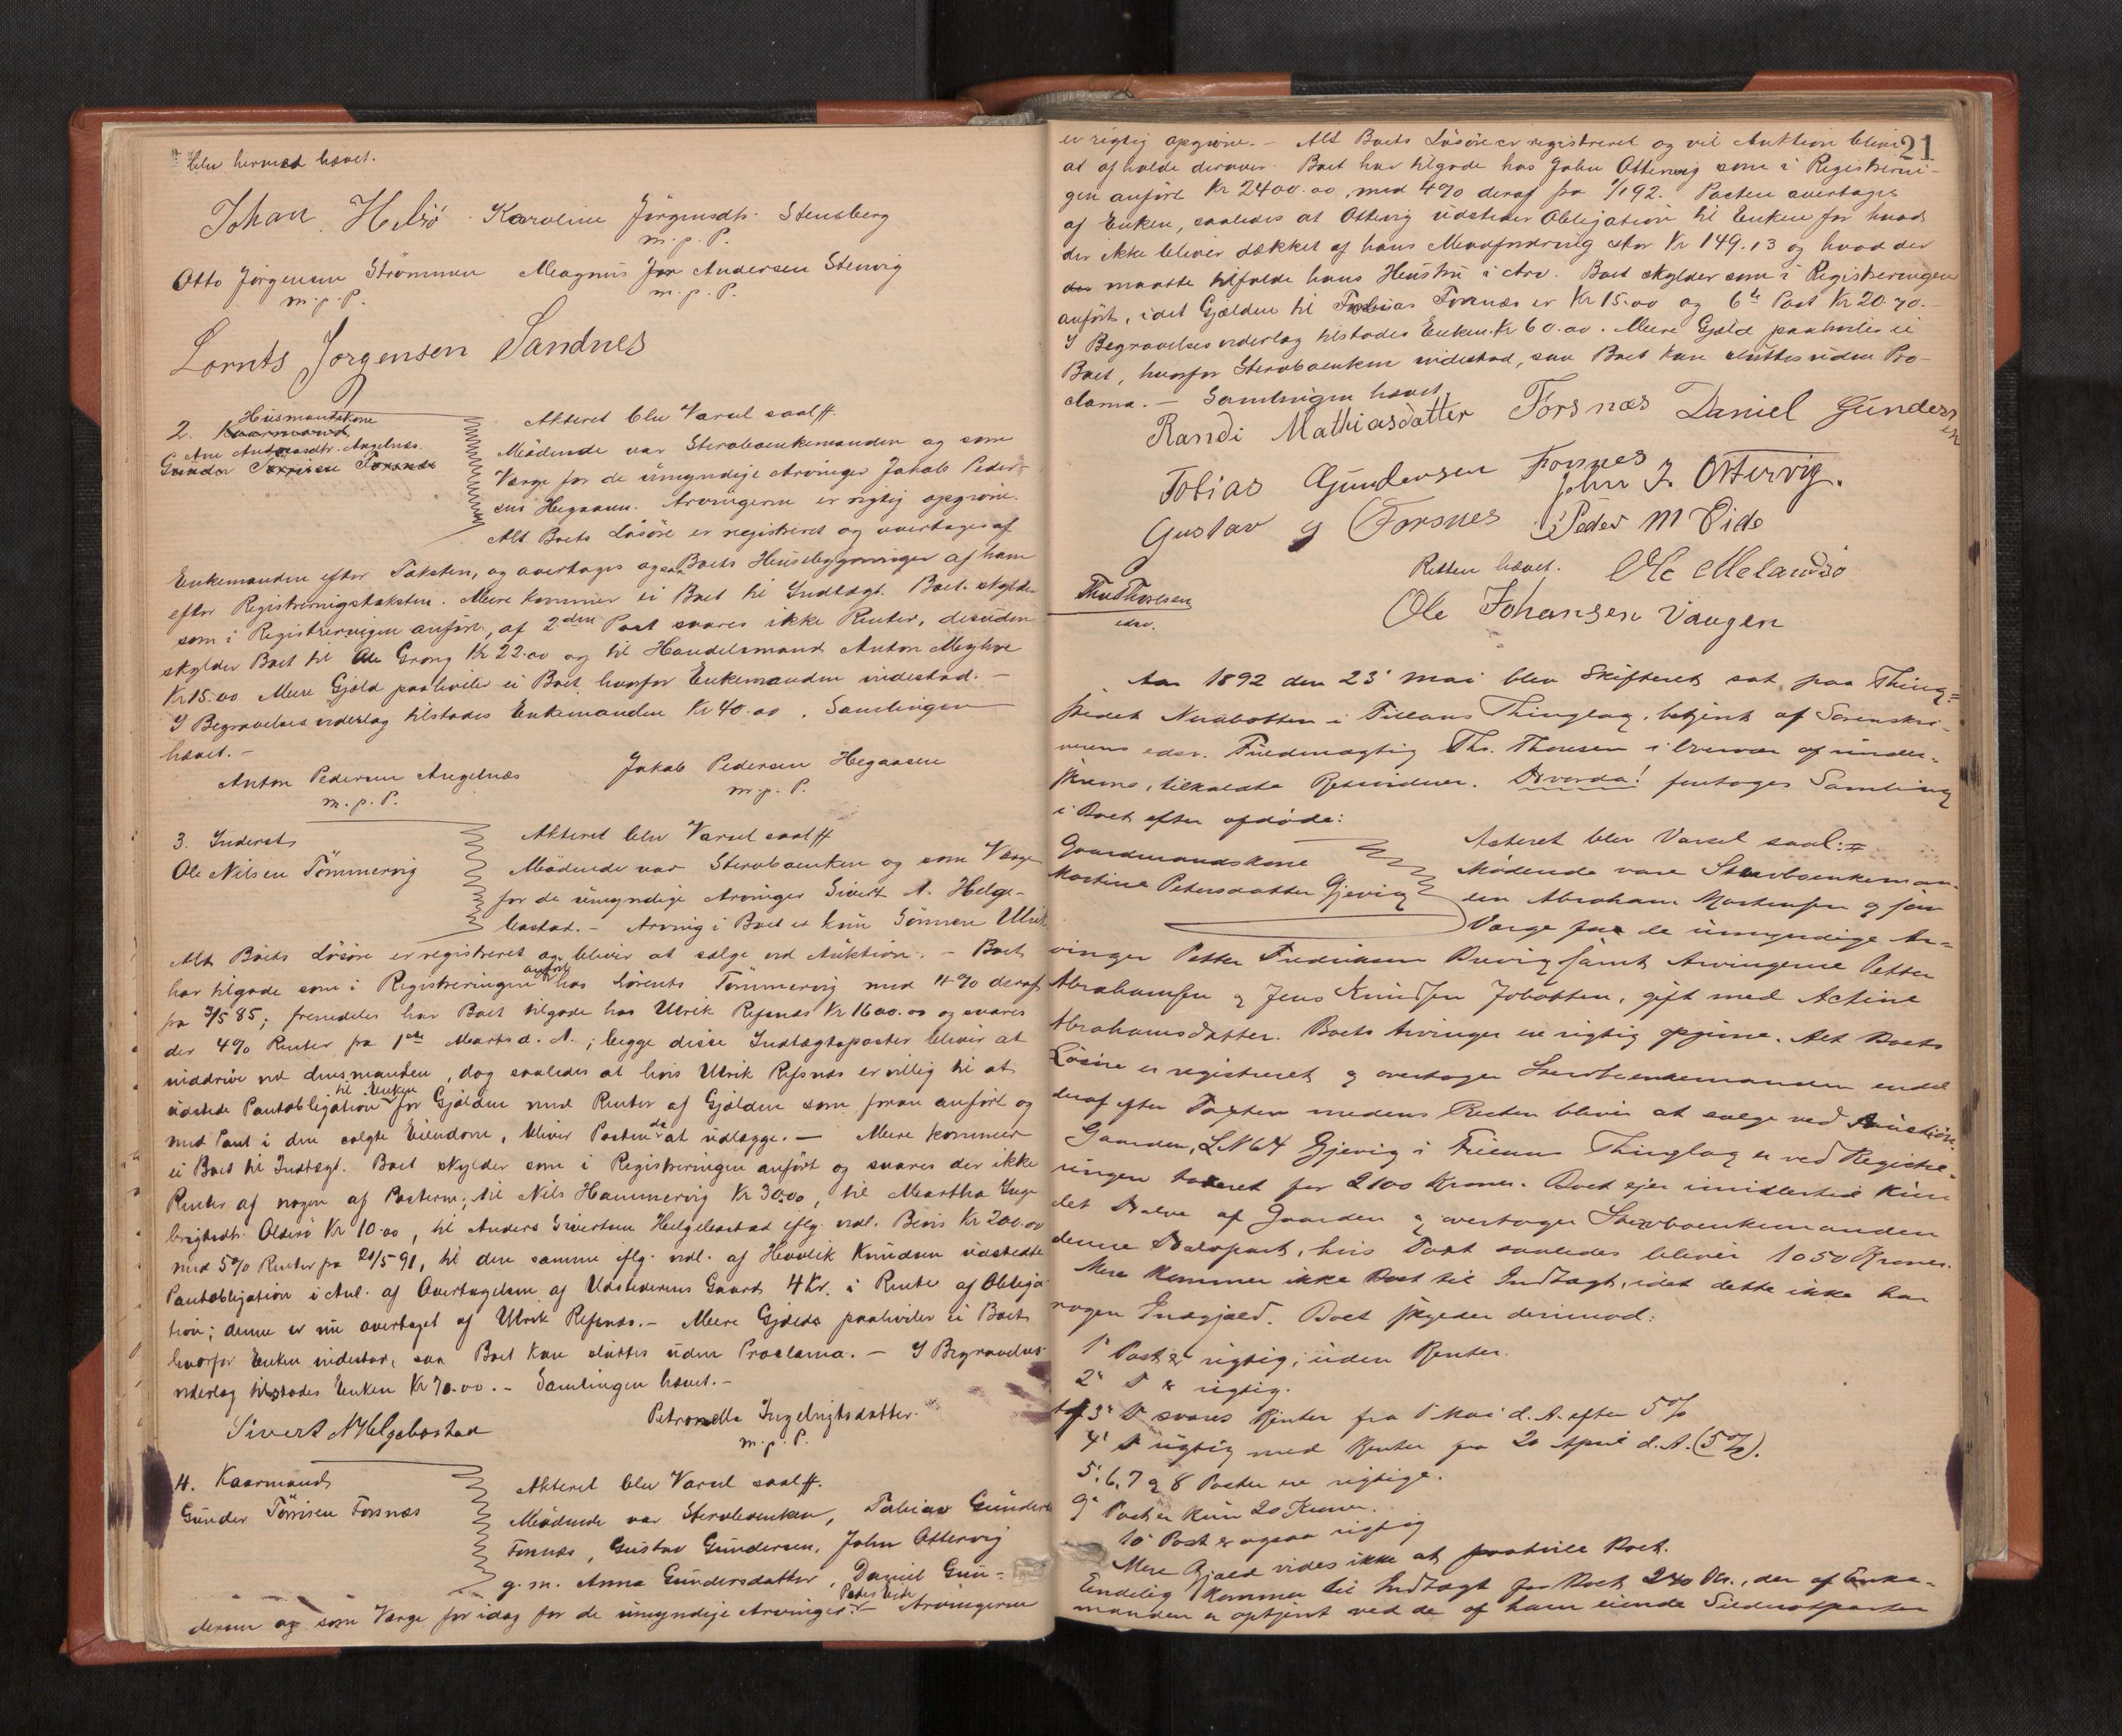 blev hermed hævet.
Johan Helsö Karoline Jörgensdtr. Stensberg
m.p.P.
Otto Jörgensen Strömmen Magnus Jon Andersen Stenvig
m.p.P. m.p.P.
Lornts Jorgensen Sandnes
2. Kaarmand Husmandskone
Ane Andreasdtr. Angelnæs.
Gunder Törrisen Forsnæs
Akteret blev Varsel saal #.
Mödende var Stervboenkemanden og som
Værge for de umyndige Arvinger Jakob Peder-
sen Hegaasen. Arvingerne er rigtig opgivne.
Alt Boets Lösöre er registreret og overtages af
Enkemanden efter Taksten, og overtages ogsaa Boets Husebygninger af ham
efter Registreringstaksten. Mere kommer ei Boet til Indtægt. Boet skylder
som i Registreringen anfört, af 2den Post svares ikke Renter, desuden
skylder Boet til Ole Grong Kr 22.00 og til Handelsmand Anton Myhre
Kr 15.00 Mere Gjæld paahviler ei Boet, hvorfor Enkemanden indestod. –
I Begravelsesvederlag tilstodes Enkemanden Kr 40.00. Samlingen
hævet. –
Anton Pedersen Angelnæs Jakob Pedersen Hegaasen
m.p.P. m.p.P.
3. Inderst
Ole Nilsen Tömmervig
Akteret blev Varsel saal #
Mödende var Stervboenken og som Værge
for de umyndige Arvinger Sivert N. Helge-
bostad. – Arving i Boet er kun Sönnen Ulrik
Alt Boets Lösöre er registreret og bliver at sælge ved Auktion. – Boet
har tilgode som i Registreringen anfört hos Lorents Tömmervig med 4% deraf
fra 3/5 85; fremdeles har Boet tilgode hos Ulrik Refsnæs Kr 1600.00 og svares
der 4% Renter fra 1ste Marts d. A.; begge disse Indtægtsposter bliver at
inddrive ved Lensmanden, dog saaledes at hvis Ulrik Refsnæs er villig til at
udstede Pantobligation til Enken for Gjælden med Renter af Gjælden som foran anfört og
med Pant i den solgte Eiendom, bliver Posten da at udlægge. – Mere kommer
ei Boet til Indtægt. Boet skylder som i Registreringen anfört og svares der ikke
Renter af nogen af Posterne; til Nils Hammervig Kr 30.00, til Martha Inge
brigtsdtr. Oldervi Kr 10.00, til Anders Sivertsen Helgebostad iflg. vedl. Bevis Kr 200.00
med 5% Renter fra 21/5 91, til den samme iflg. vedl. af Hovlik Knudsen udstedte
Pantobligation i Anl. af Overtagelsen af Udstederens Gaard 4 Kr. i Rente af Obliga
tion; denne er nu overtaget af Ulrik Refsnæs. – Mere Gjæld paahviler ei Boet
hvorfor Enken indestod, saa Boet kan sluttes uden Proclama. – I Begravelses-
vederlag tilstodes Enken Kr 70.00. – Samlingen hævet. –
Sivert N Helgebostad Petronella Ingebrigtsdatter.
m.p.P.
4. Kaarmand
Gunder Törrisen Forsnæs
Akteret blev Varsel saal #.
Mödende var Stervboenken, Tobias Gunders
Forsnæs, Gustav Gundersen, John Ottervig
g. m. Anna Gundersdatter, Daniel Gun-
dersen og som Værge for idag for de umyndige Arvinger Peder Eide – Arvingerne
21
er rigtig opgivne. – Alt Boets Lösöre er registreret og vil Auktion blive
at afholde derover. Boet har tilgode hos John Ottervig som i Registrerin-
gen anfört Kr 2400.00, med 4% deraf fra 1/1 92. Posten overtages
af Enken, saaledes at Ottervig udsteder Obligation til Enken for hvad
der ikke bliver dækket af hans Modfordring stor Kr 149.13 og hvad der
der maatte tilfalde hans Hustru i Arv. Boet skylder som i Registreringen
anfört, idet Gjælden til Tobias Forsnæs er Kr 15.00 og 6te Post Kr 20.70. –
I Begravelsesvederlag tilstodes Enken Kr 60.00. Mere Gjæld paahviler ei
Boet, hvorfor Stervboenken indestod, saa Boet kan sluttes uden Pro-
clama. – Samlingen hævet
Randi Mathiasdatter Forsnæs Daniel Gundersen
Tobias Gundersen Forsnes John J. Ottervig.
Gustav G Forsnes Peder M Eide
Retten hævet. Ole Melandsö
Ths Thoresen
edsv.
Ole Johansen Vaagen
Aar 1892 den 23' Mai blev Skifteret sat paa Thing-
stedet Nordbotten i Fillans Thinglag, betjent af Sorenskri-
verens edsv. Fuldmægtig Ths. Thoresen i Overvær af under-
skrevne, tilkaldte Retsvidner. Hvorda! foretoges Samling
i Boet efter afdöde:
Gaardmandskone
Martine Petersdatter Gjevig
Acteret blev Varsel saal: #
Mödende vare Stervboenkeman-
den Abraham Mortensen og som
Værge for de umyndige Ar-
vinger Petter Fredriksen Durvig samt Arvingerne Petter
Abrahamsen og Jens Knudsen Jobotten, gift med Actine
Abrahamsdatter. Boets Arvinger ere rigtig opgivne. Alt Boets
Lösöre er registreret og overtager Stervboenkemanden endel
deraf efter Taxten medens Resten bliver at sælge ved Auction.
Gaarden, LN 64 Gjevig i Fillans Thinglag er ved Registre-
ringen taxeret for 2100 Kroner. Boet ejer imidlertid kun
det Halve af Gaarden og overtager Stervboenkemanden
denne Halvpart, hvis Taxt saaledes bliver 1050 Kroner.
Mere kommer ikke Boet til Indtægt, idet dette ikke har
nogen Indgjæld. Boet skylder derimod:
1' Post er rigtig, uden Renter.
2' D er rigtig.
Af 3' D svares Renter fra 1 Mai d. A. efter 5%
4' D rigtig med Renter fra 20 April d. A. (5%).
5', 6, 7 og 8 Poster ere rigtige.
9' Post er kun 20 Kroner.
10' Post er ogsaa rigtig
Mere Gjæld vides ikke at paahvile Boet.
Endelig kommer til Indtægt for Boet 240 Kr., der af Enke-
manden er optjent ved de af ham eiende Sildenotparter